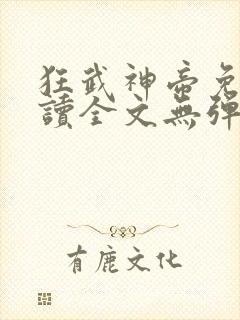 狂武神帝免
讀全文無彈
有鹿文化